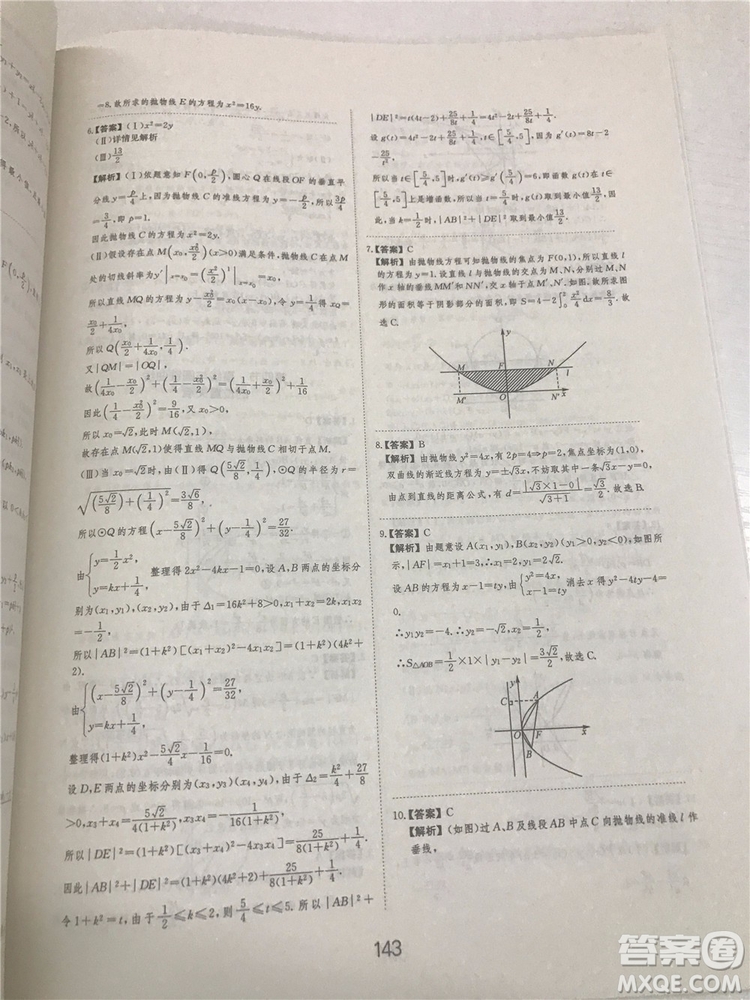 =8. 故所求的抛物线E的方程为x²=16y.
6.【答案】(Ⅰ)x²=2y
(Ⅱ)详情见解析
(Ⅲ)13/2
【解析】(Ⅰ)依题意知F(0, p/2), 圆心Q在线段OF的垂直平
分线y=p/4上, 因为抛物线C的准线方程为y=-p/2, 所以3p/4
=3/4, 即p=1.
因此抛物线C的方程为x²=2y.
(Ⅱ)假设存在点M(x₀, x₀²/2)(x>0)满足条件, 抛物线C在点M
处的切线斜率为y′|x=x₀=(x²/2)′|x=x₀=x₀,
所以直线MQ的方程为y-x₀²/2=x₀(x-x₀), 令y=1/4得x=
x₀/2+1/4x₀,
所以Q(x₀/2+1/4x₀, 1/4)
又|QM|=|OQ|,
故(1/4x₀-x₀/2)²+(1/4-x₀²/2)²=(1/4x₀+x₀/2)²+1/16
因此(1/4-x₀²/2)²=9/16, 又x₀>0,
所以x₀=√2, 此时M(√2,1),
故存在点M(√2,1), 使得直线MQ与抛物线C相切于点M.
(Ⅲ)当x₀=√2时, 由(Ⅱ)得Q(5√2/8, 1/4), ⊙Q的半径为r=
√((5√2/8)²+(1/4)²)=3√6/8,
所以⊙Q的方程为(x-5√2/8)²+(y-1/4)²=27/32.
由{y=1/2x², y=kx+1/4, 整理得2x²-4kx-1=0. 设A,B两点的坐标分
别为(x₁,y₁),(x₂,y₂), 由于Δ₁=16k²+8>0, x₁+x₂=2k, x₁x₂=
-1/2,
所以|AB|²=(1+k²)[(x₁+x₂)²-4x₁x₂]=(1+k²)(4k²+
2).
由{(x-5√2/8)²+(y-1/4)²=27/32, y=kx+1/4,
整理得(1+k²)x²-5√2/4x-1/16=0.
设D,E两点的坐标分别为(x₃,y₃)(x₄,y₄), 由于Δ₂=k²/4+27/8
>0, x₃+x₄=5√2/4(1+k²), x₃x₄=-1/16(1+k²),
所以|DE|²=(1+k²)[(x₃+x₄)²-4x₃x₄]=25/8(1+k²)+1/4.
因此|AB|²+|DE|²=(1+k²)(4k²+2)+25/8(1+k²)+1/4,
令1+k²=t, 由于1/2≤k≤2, 则5/4≤t≤5. 所以|AB|²+
|DE|²=t(4t-2)+25/8t+1/4=4t²-2t+25/8t+1/4.
设g(t)=4t²-2t+25/8t+1/4, t∈[5/4,5], 因为g′(t)=8t-2
-25/8t²,
所以当t∈[5/4,5]时, g′(t)≥g′(5/4)=6>0, 即函数g(t)在t∈
[5/4,5]是增函数, 所以当t=5/4时, g(t)取到最小值13/2, 因
此, 当k=1/2时, |AB|²+|DE|²取到最小值13/2.
7.【答案】C
【解析】由抛物线方程可知抛物线的焦点为F(0,1), 所以直线l
的方程为y=1. 设直线l与抛物线的交点为M、N, 分别过M、N
作x轴的垂线MM′和NN′, 交x轴于点M′、N′, 如图. 故所求图
形的面积等于阴影部分的面积, 即S=4-2∫₀²x²/4dx=8/3. 故
选C.
y
M F N l
M′ O N′ x
8.【答案】B
【解析】由抛物线y²=4x, 有2p=4⇒p=2, 焦点坐标为(1,0),
双曲线的渐近线方程为y=±√3x, 不妨取其中一条√3x-y=0,
由点到直线的距离公式, 有d=|√3×1-0|/√(3+1)=√3/2. 故选B.
9.【答案】C
【解析】由题意设A(x₁,y₁),B(x₂,y₂)(y₁>0,y₂<0), 如图所
示, |AF|=x₁+1=3, ∴x₁=2, y₁=2√2.
设AB的方程为x-1=ty, 由{y²=4x, x-1=ty 消去x得y²-4ty-4=
0.
∴y₁y₂=-4. ∴y₂=-√2, x₂=1/2,
∴S△AOB=1/2×1×|y₁-y₂|=3√2/2, 故选C.
y
C A
O F x
B
10.【答案】C
【解析】(如图)过A、B及线段AB中点C向抛物线的准线l作
垂线,
143
答案圈
MXQE.COM